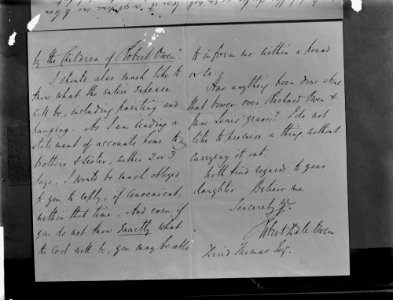 by the Children of Robert Owen".
I should also much like to
know what the entire expense
will be, including painting and
hanging. As I am sending a
statement of accounts home to my
brothers & sister, within 2 or 3
days, I would be much obliged
to you to reply, if convenient,
within that time. And even, if
you do not know exactly what
the cost will be, you may be able
to inform me within a pound
or so.
Has anything been done about
that over Richard Owen &
Jane Lewis' graves? I do not
like to promise a thing, without
carrying it out.
With kind regards to your
daughter. Believe me
Sincerely Yrs
Robert Dale Owen
David Thomas Esq.